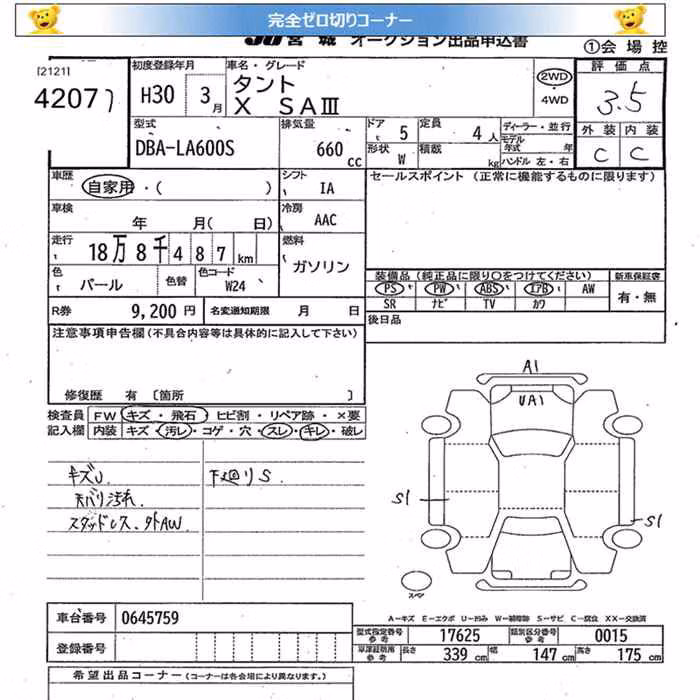 完全ゼロ切りコーナー
JU 宮城 オークション出品申込書
①会場控
[2121]
42071
初度登録年月
H30 3月
車名・グレード
タント
X SAⅢ
2WD
4WD
評価点
3.5
外装 内装
C C
型式
DBA-LA600S
排気量
660 cc
ドア 5
定員 4人
形状 W
積載 kg
ディーラー・並行
モデル年式 年
ハンドル 左・右
車歴
自家用・( )
シフト
IA
セールスポイント (正常に機能するものに限ります)
車検
年 月( 日)
冷房
AAC
走行
18万8千487km
燃料
ガソリン
色
パール
色替
色コード
W24
装備品(純正品に限り○をつけてください)
新車保証書
PS PW ABS エアB AW
SR ナビ TV カワ
有・無
R券 9,200円
名変通知期限 月 日
後日品
注意事項申告欄(不具合内容等は具体的に記入して下さい)
修復歴 有 〔箇所 〕
検査員記入欄
FW キズ・飛石・ヒビ割・リペア跡・×要
内装 キズ・汚レ・コゲ・穴・スレ・キレ・破レ
キズU
天バリ汚れ.
スタッドレス、外AW
下廻りS
A1
UA1
S1
S1
スペア
A-キズ E-エクボ U-凹み W-補修跡 S-サビ C-腐食 XX-交換済
車台番号 0645759
登録番号
型式指定番号 参考 17625
類別区分番号 参考 0015
車庫証明用 参考 長さ 339cm 幅 147cm 高さ 175cm
希望出品コーナー (コーナーは各会場により異なります。)